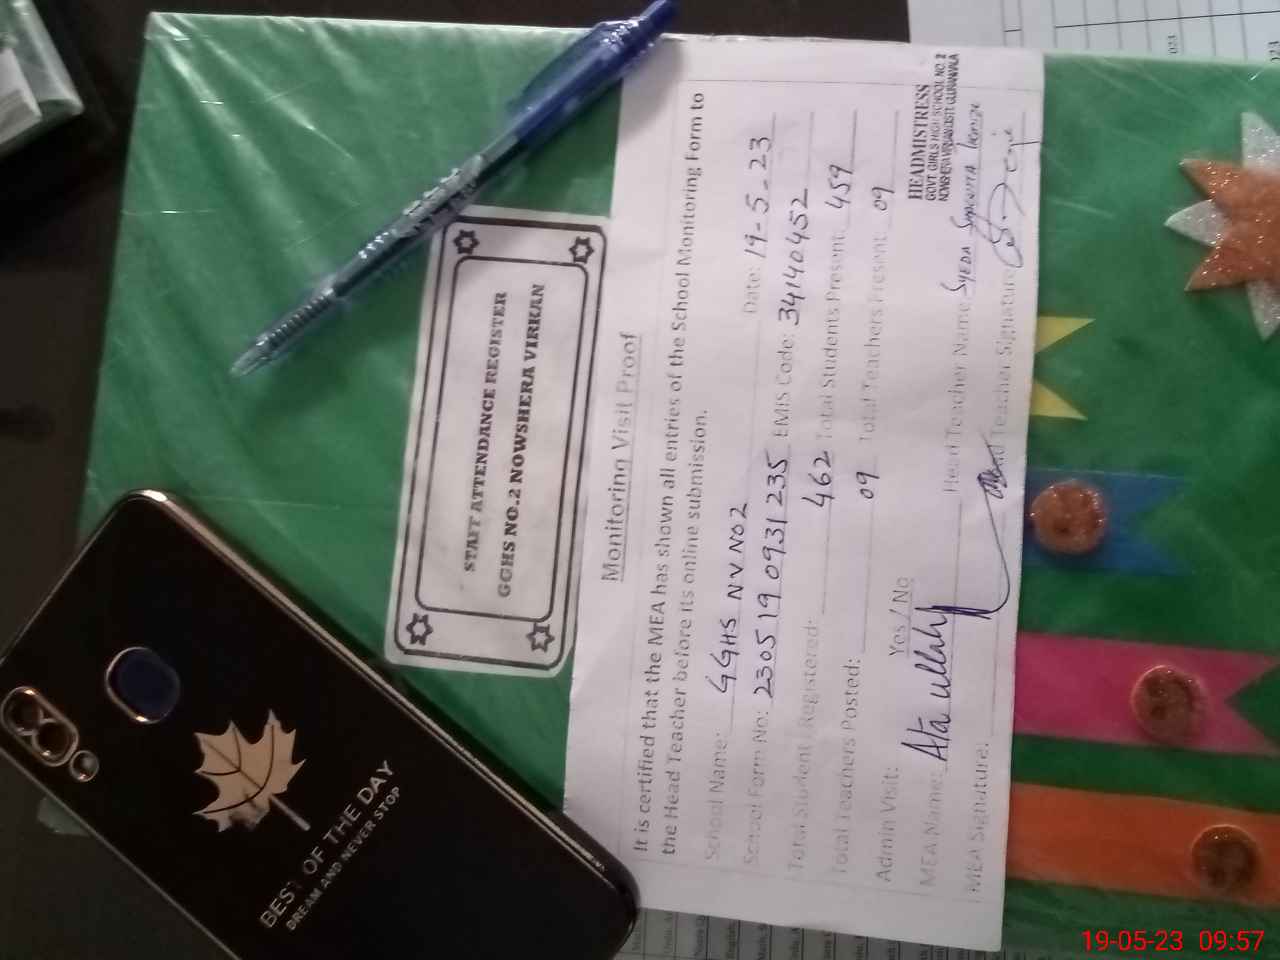 STAFF ATTENDANCE REGISTER
GGHS NO.2 NOWSHERA VIRKAN
Monitoring Visit Proof
It is certified that the MEA has shown all entries of the School Monitoring Form to
the Head Teacher before its online submission.
School Name: GGHS NV NO2 Date: 19-5-23
School Form No: 230519 0931 235 EMIS Code: 34140452
Total Student Registered: 462 Total Students Present: 459
Total Teachers Posted: 09 Total Teachers Present: 09
Admin Visit: Yes / No
HEADMISTRESS
GOVT GIRLS HIGH SCHOOL NO. 2
NOWSHERA VIRKAN DISTT. GUJRANWALA
MEA Name: Ata ullah Head Teacher Name: SYEDA
MEA Signature: Head Teacher Signature:
BEST OF THE DAY
DREAM AND NEVER STOP
19-05-23 09:57